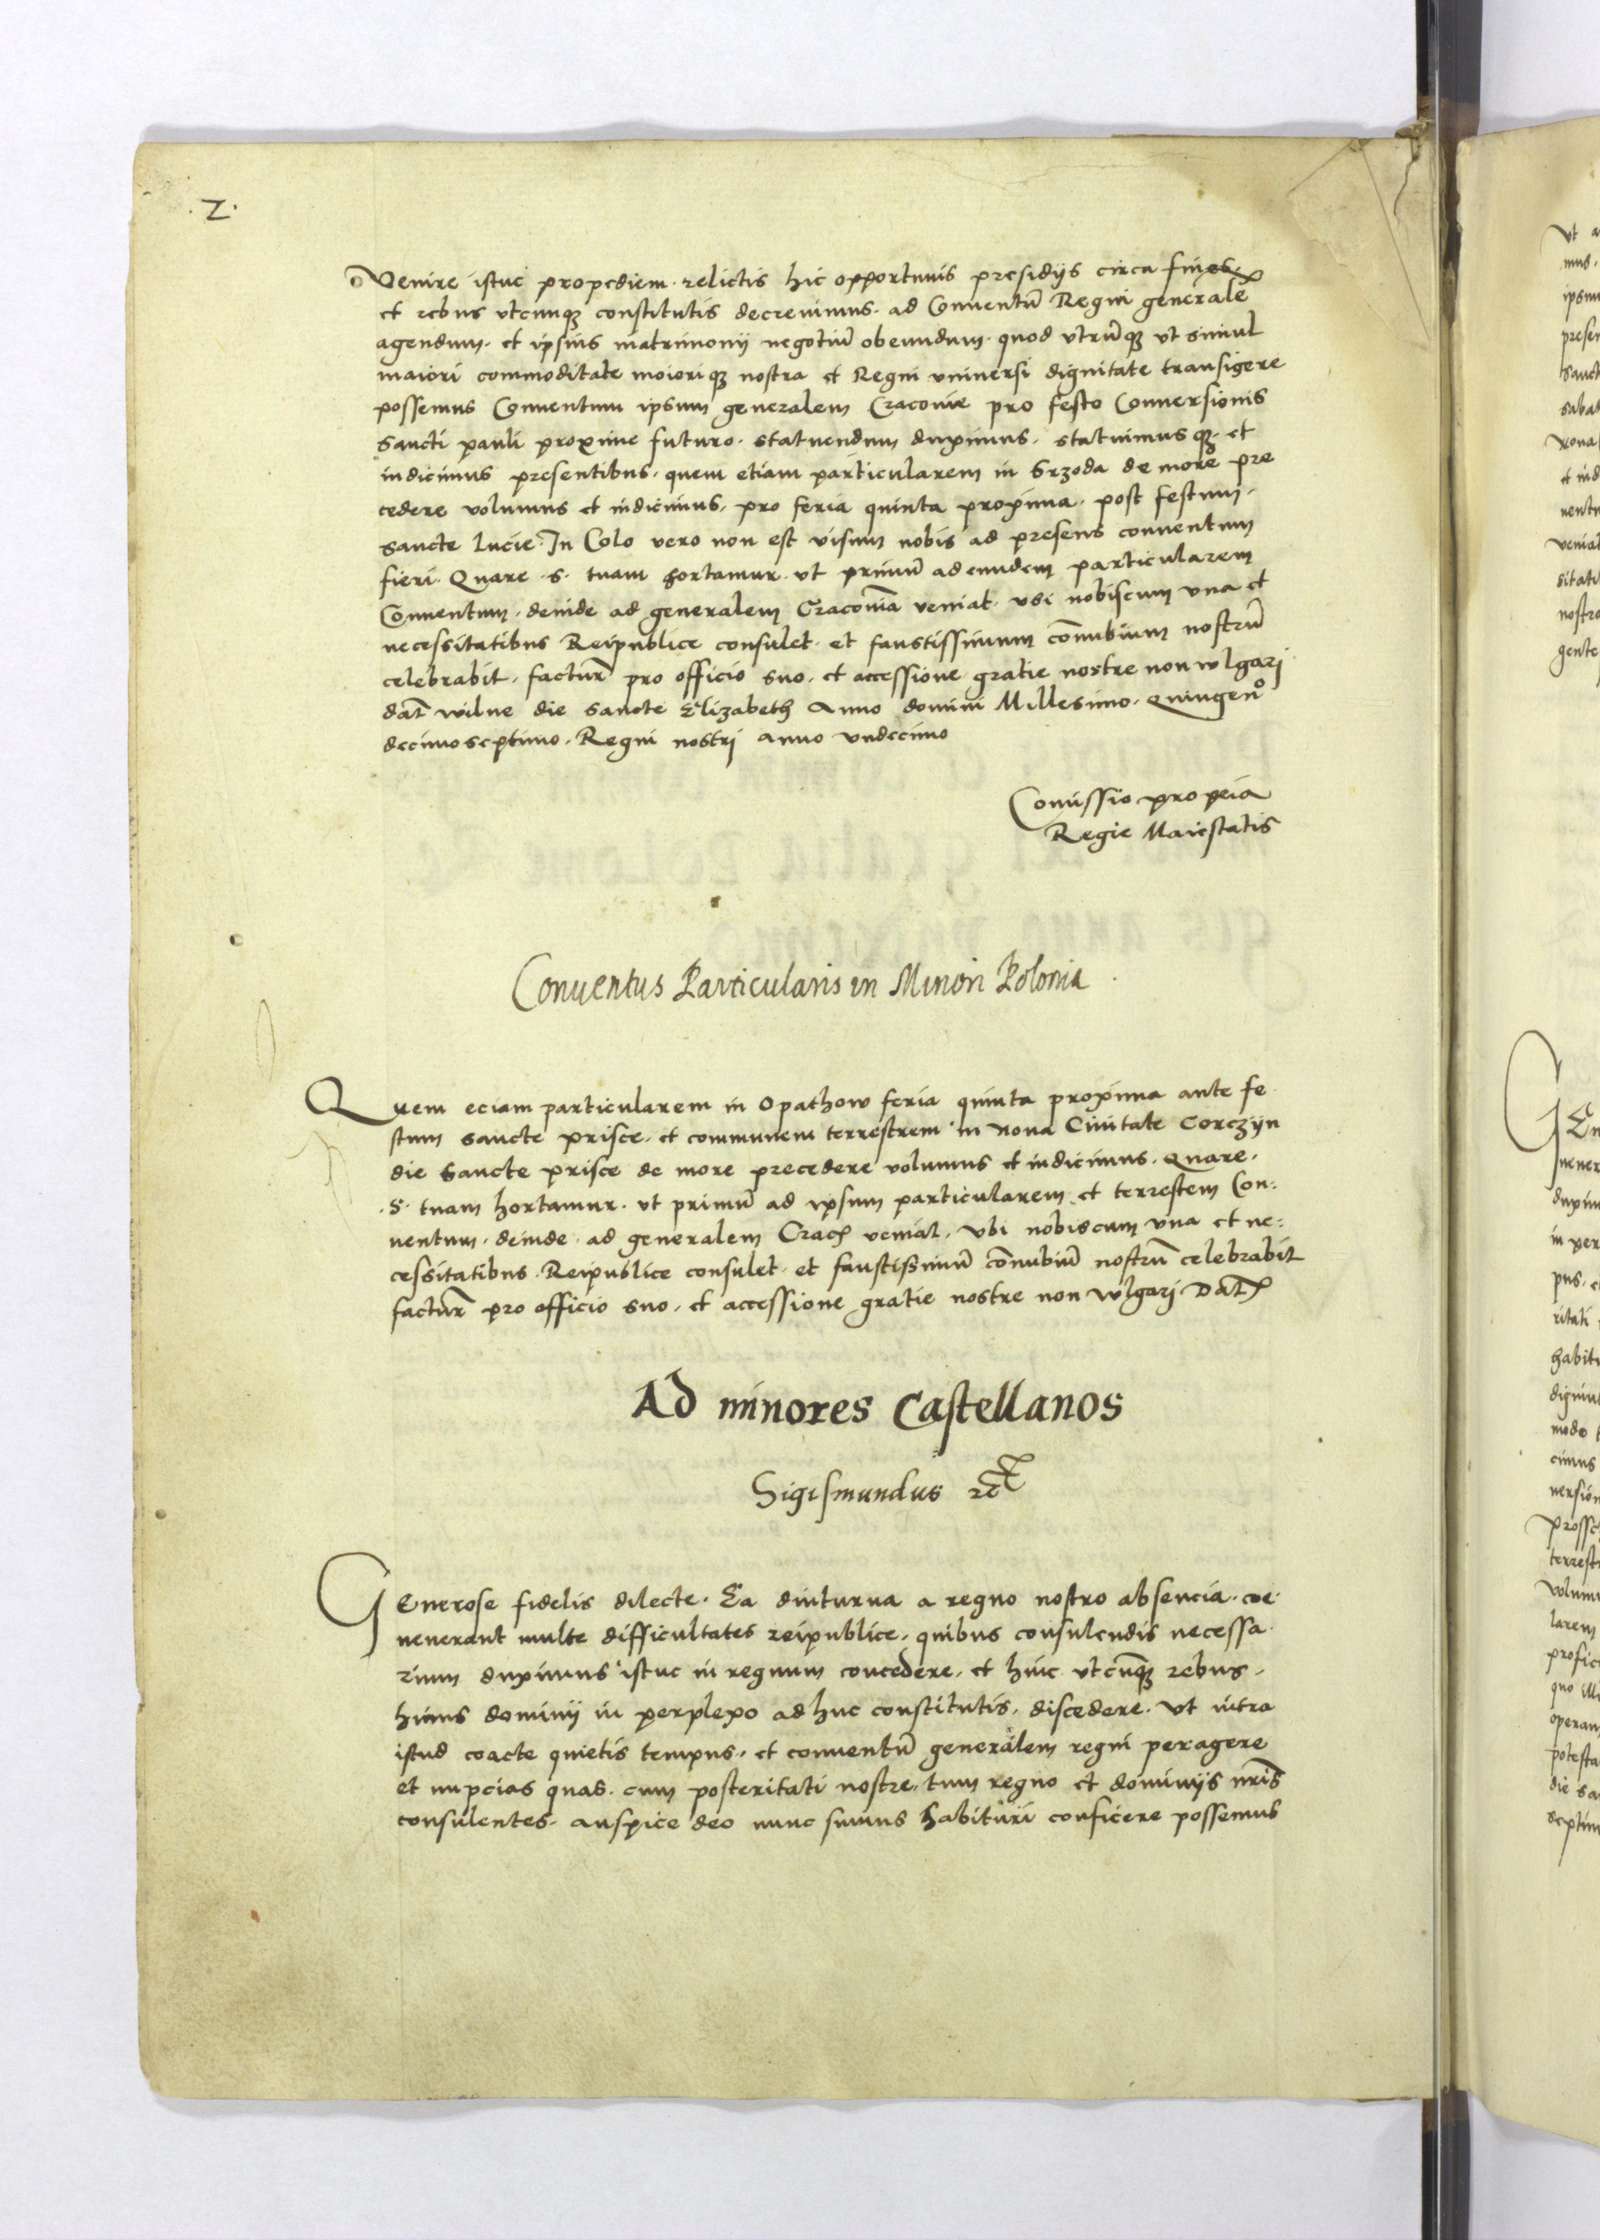 .2.
Venire istuc propediem. relictis hic opportunis presidijs circa fines.
et rebus utcunqз constitutis decrevimus. ad Conventū Regni generalē
agendum. et ipsius matrimonij negotiū obeundum. quod utrūqз ut simul
maiori commoditate moioriqз nostra et Regni universi dignitate transigere
possemus Conventum ipsum generalem Cracovie pro festo Conversionis
sancti pauli proxime futuro. statuendum duximus. statuimusqз. et
indicimus presentibus. quem etiam particularem in Srzoda de more pre
cedere volumus et indicimus. pro feria quinta proxima. post festum.
sancte Lucie. In Colo vero non est visum nobis ad presens conventum
fieri. Quare .S. tuam hortamur. ut primū ad eundem particularem
Conventum. deinde ad generalem Cracoviā veniat. ubi nobiscum una et
necessitatibus Reipublice consulet. et faustissimum cōnubium nostrū
celebrabit. facturꝰ pro officio suo. et accessione gratie nostre non wlgari
dat̄ wilne die sancte Elizabeth Anno domini Millesimo. Quingenº
decimoseptimo. Regni nostri anno undecimo
Comissio propria
Regie Maiestatis
Conventus Particularis in Minori Polonia
Quem eciam particularem in Opathow feria quinta proxima ante fe
stum sancte prisce. et communem terrestrem in nova Civitate Corczyn
die sancte prisce de more precedere volumus et indicimus. Quare.
.S. tuam hortamur. ut primū ad ipsum particularem et terrestem Con:
ventum. deinde. ad generalem Crac̄ veniat. ubi nobiscum una et ne:
cessitatibus. Reipublice consulet. et faustissimū cōnubiū nostrū celebrabit
facturꝰ pro officio suo. et accessione gratie nostre non wlgari. Dat̄
Ad minores Castellanos
Sigismundus rc̄
Generose fidelis dilecte. Ea diuturna a regno nostro absencia. coe
venerant multe difficultates reipublice. quibus consulendis necessa
rium duximus istuc in regnum concedere. et hinc utcūqз rebus.
huius dominij in perplexo adhuc constitutis. discedere. ut intra
istud coacte quietis tempus. et conventū generalem regni peragere
et nupcias quas. cum posteritati nostre. tum regno et dominijs nr̄is
consulentes. auspice deo nunc sumus habituri conficere possemus